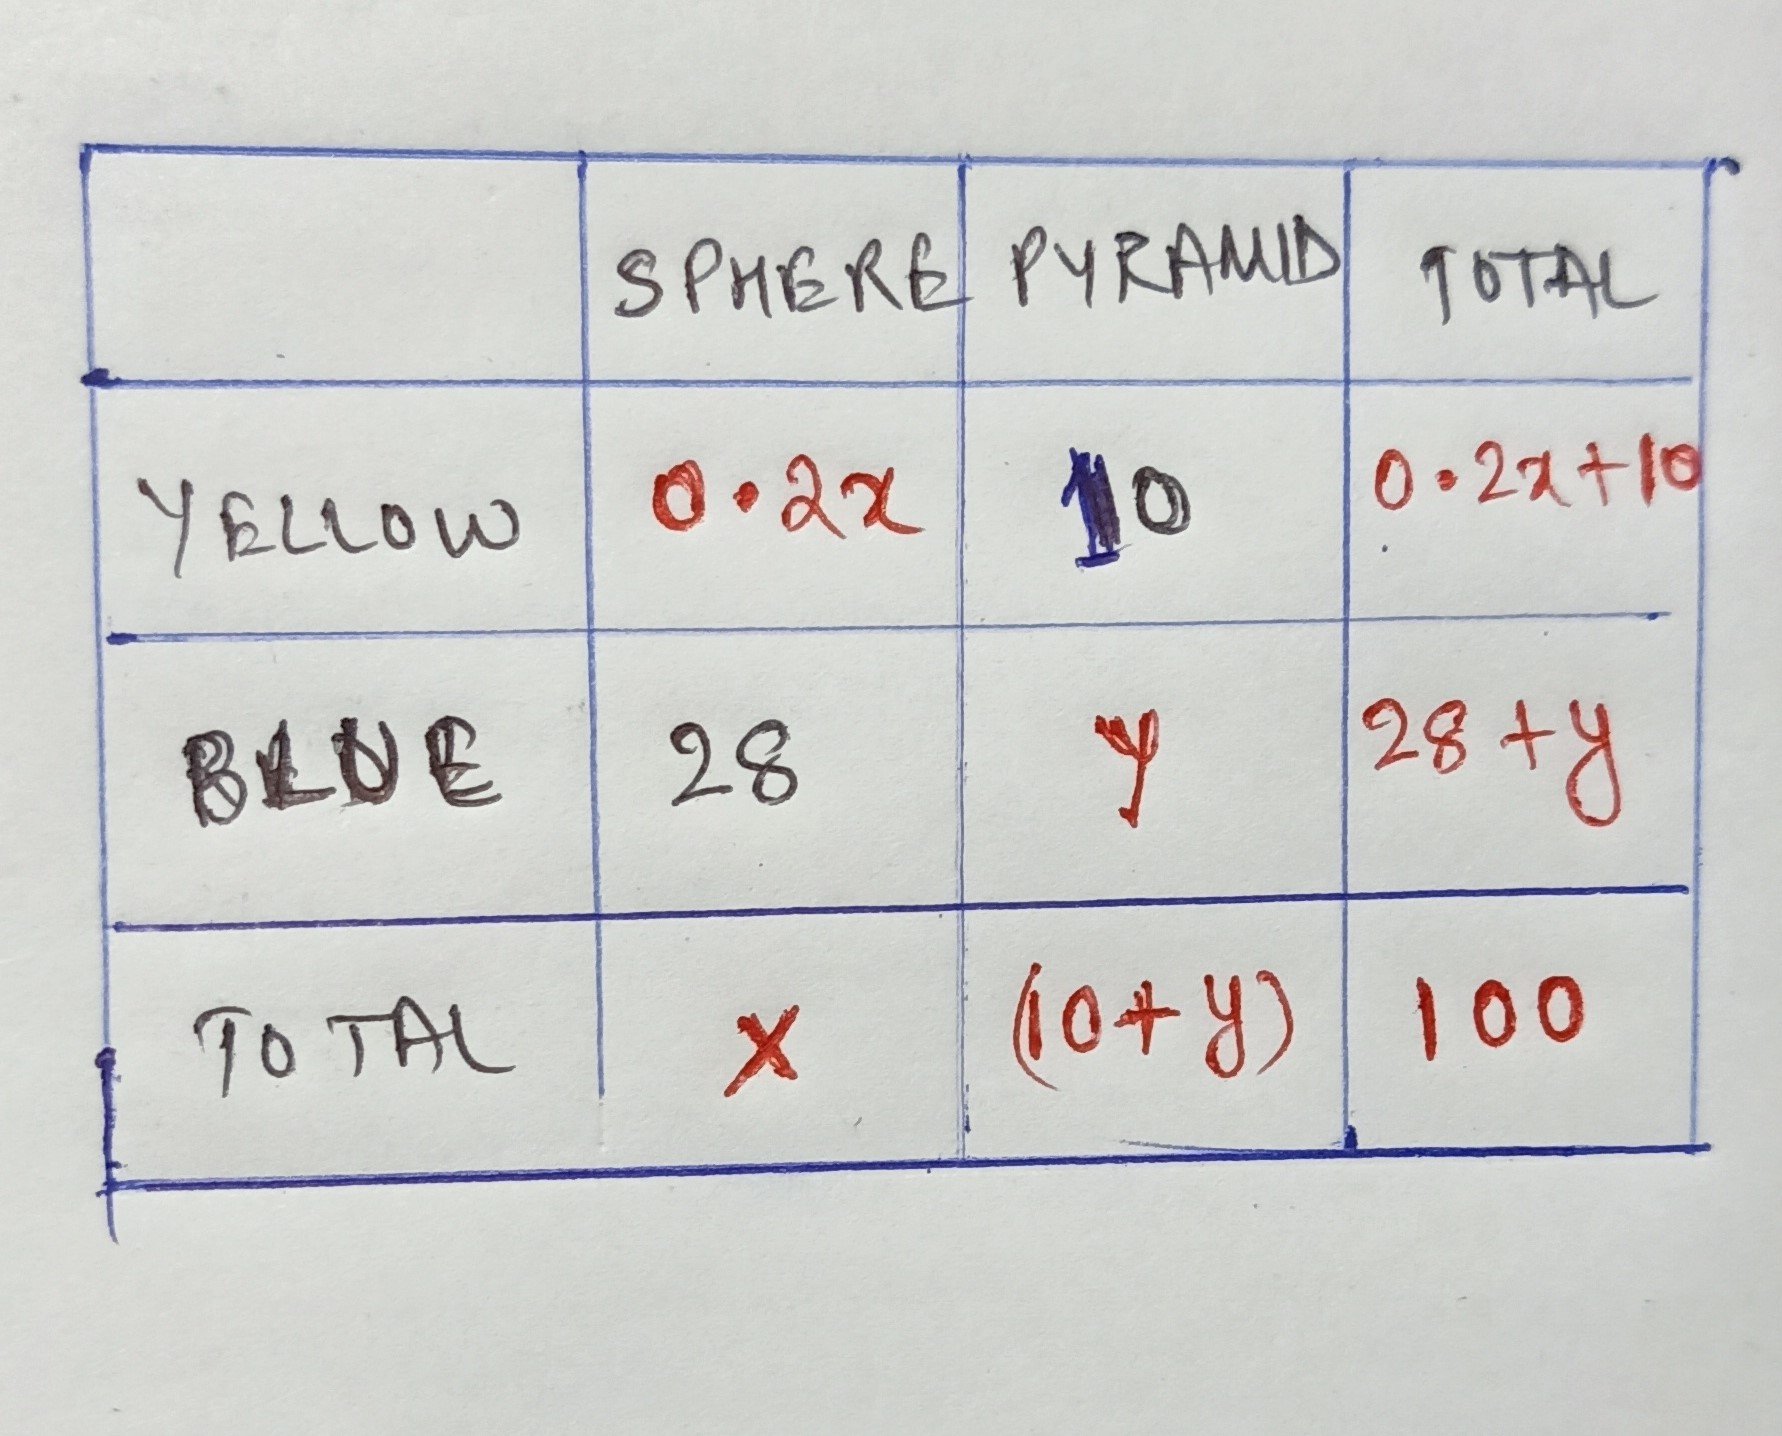 SPHERE PYRAMID TOTAL
YELLOW 0.2x 10 0.2x+10
BLUE 28 y 28+y
TOTAL x (10+y) 100